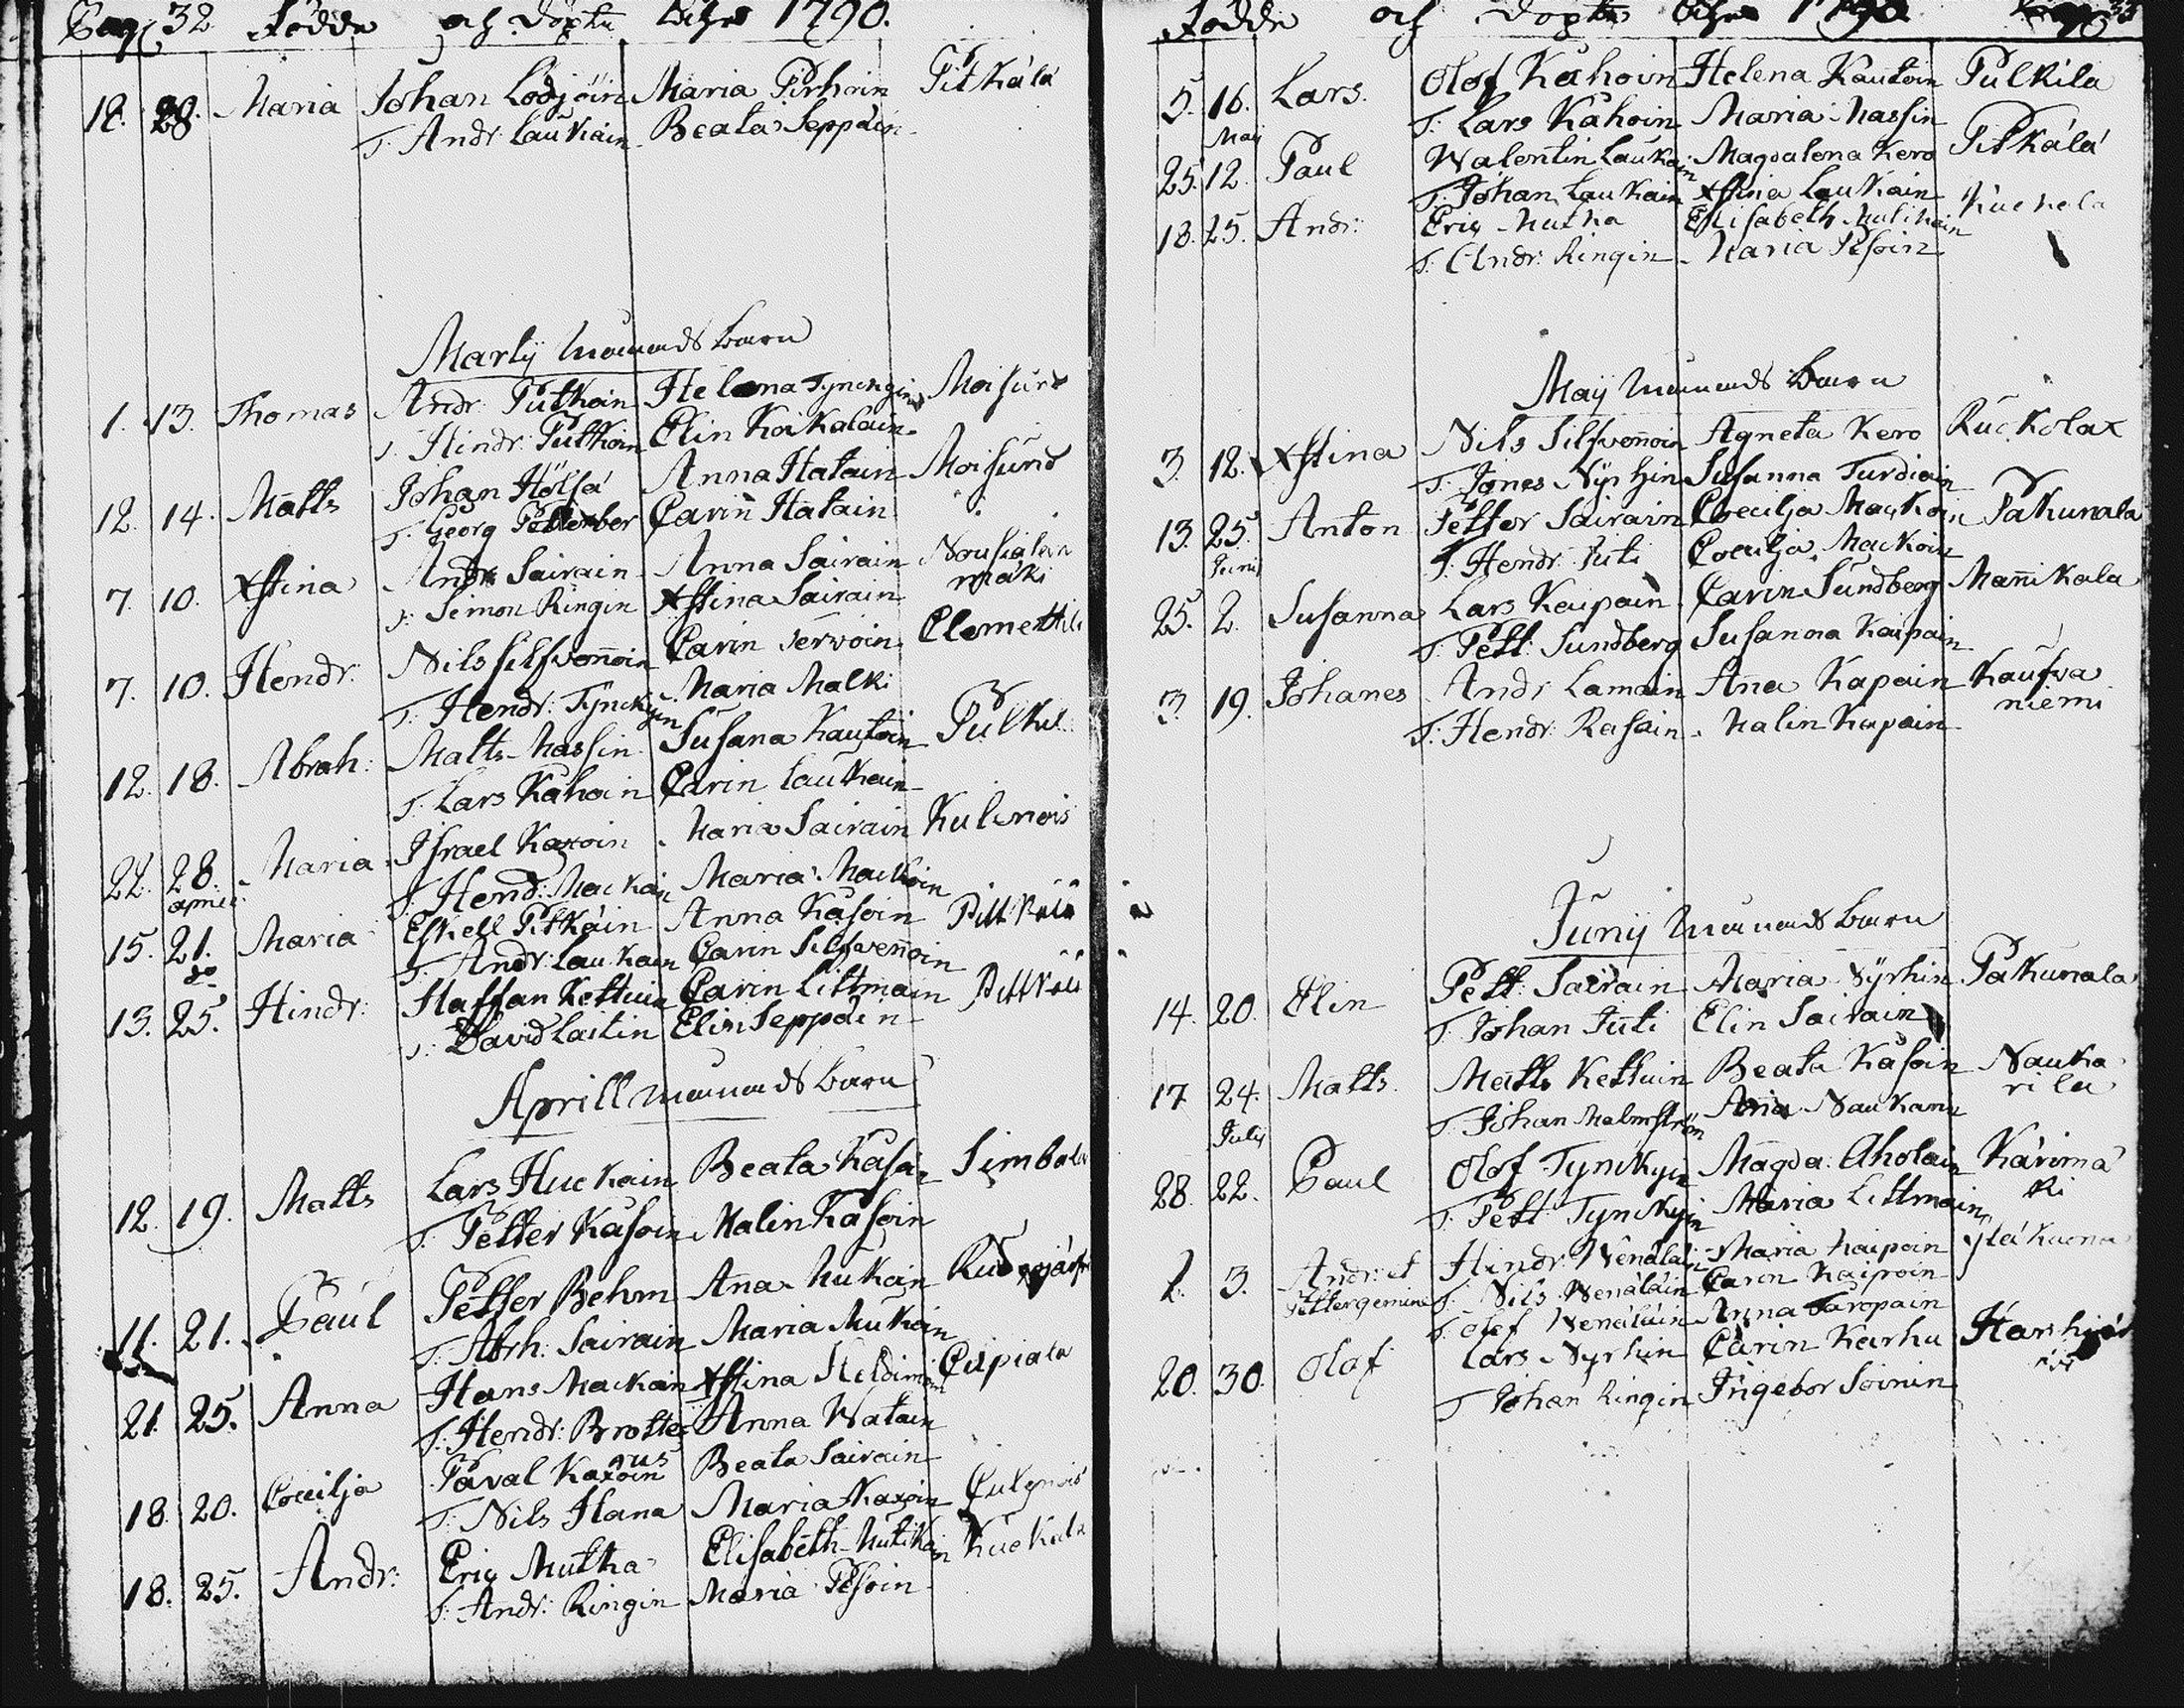 Pag. 32 Födde och Döpte Åhr 1790.
18. 28. Maria Johan Lodjöin Maria Pirhoin Pitkälä
T. Andr: Laukain Beata Seppäin
Martij månads barn
1. 13. Thomas Andr: Putkoin Helena Tynckyin Moisund
T. Hindr: Putkoin Elin Koikalain
12. 14. Matts Johan Hölsä Anna Hatain Moisund
T. Georg Petterber Carin Hatain
7. 10. Xstina Andr: Sairain Anna Sairain Nousialan
T. Simon Ringin Xstina Sairain mäki
7. 10. Hendr: Nils Silfvenoin Carin Terwoin Clementtil
T: Hendr: Tynckyin Maria Malki
12. 18. Abrah: Matts Massin Susana Kautoin Pulkil
T: Lars Kähoin Carin Laukain
22. 28. Maria Israel Kaxoin Maria Sairain Kulenois
april T: Hend: Mackoin Maria Mackoin
15. 21. Maria Eskell Pitkäin Anna Käsoin Pittkälä
do T. Andr: Laukain Carin Silfvenoin
13. 25. Hindr: Staffan Kettuin Carin Littmain Pittkälä
T: David Lastin Elin Seppäin
Aprill månads barn
12. 19. Matts Lars Huckain Beata Käsoin Simbala
T: Petter Käsoin Malin Käsoin
11. 21. Paul Petter Behm Ana Mukain
T: Abrh: Sairain Maria Mukain
21. 25. Anna Hans Mackoin Xstina Cuipiala
T: Hendr: Brotterus Anna Watain
18. 20. Coecilja Paval Kaxoin Beata Sairain
T: Nils Hana Maria Kaxoin Culenois
18. 25. Andr: Eric Mutka Elisabeth Mutikain Kuckola
T: Andr: Ringin Maria Pesoin
Födde och Döpte Åhr 1790 Pag 33
5. 16. Lars Olof Kähoin Helena Kautoin Pulkila
May T: Lars Kähoin Maria Massin
25. 12. Paul Walentin Laukain Magdalena Kero Pitkälä
T: Johan Laukain Xstina Laukain
18. 25. Andr: Eric Mutka Elisabeth Mutikain Kuckola
T: Andr: Ringin Maria Pesoin
Maij månads Barn
3. 12. Xstina Nils Silfvenoin Agneta Kero Ruckolax
T: Jöns Nyrhin Susanna Turdiain
13. 25. Anton Petter Sairain Coecilja Mackoin Pakunala
Junij T. Hendr: Juti Coecilja Mackoin
25. 2. Susanna Lars Kaipain Carin Sundberg Mannikala
T: Pett: Sundberg Susanna Kaipain
3. 19. Johanes Andr Lamain Ana Kapain Kaufva
T: Hendr: Rasain Malin Kapain niemi
Junij Månads Barn
14. 20. Elin Pett: Sairain Maria Nyrhin Pakunala
T: Johan Juti Elin Sairain
17. 24. Matts Matts Kettuin Beata Käsoin Nauka
July T: Johan Malmström Ana Naukarin rila
28. 22. Paul Olof Tynckyin Magda: Aholain Kärimä
T: Pett Tynckyin Maria Littmain ki
2. 3. Andr: et Hindr: Wenäläin Maria Kaipoin yläkuona
Petter gemini T: Nils Wenäläin Carin Kaipoin
T: Olof Wenäläin Anna Taropain
20. 30. Olof Lars Nyrhin Carin Karhu
T Johan Ringin Ingebor Soinin